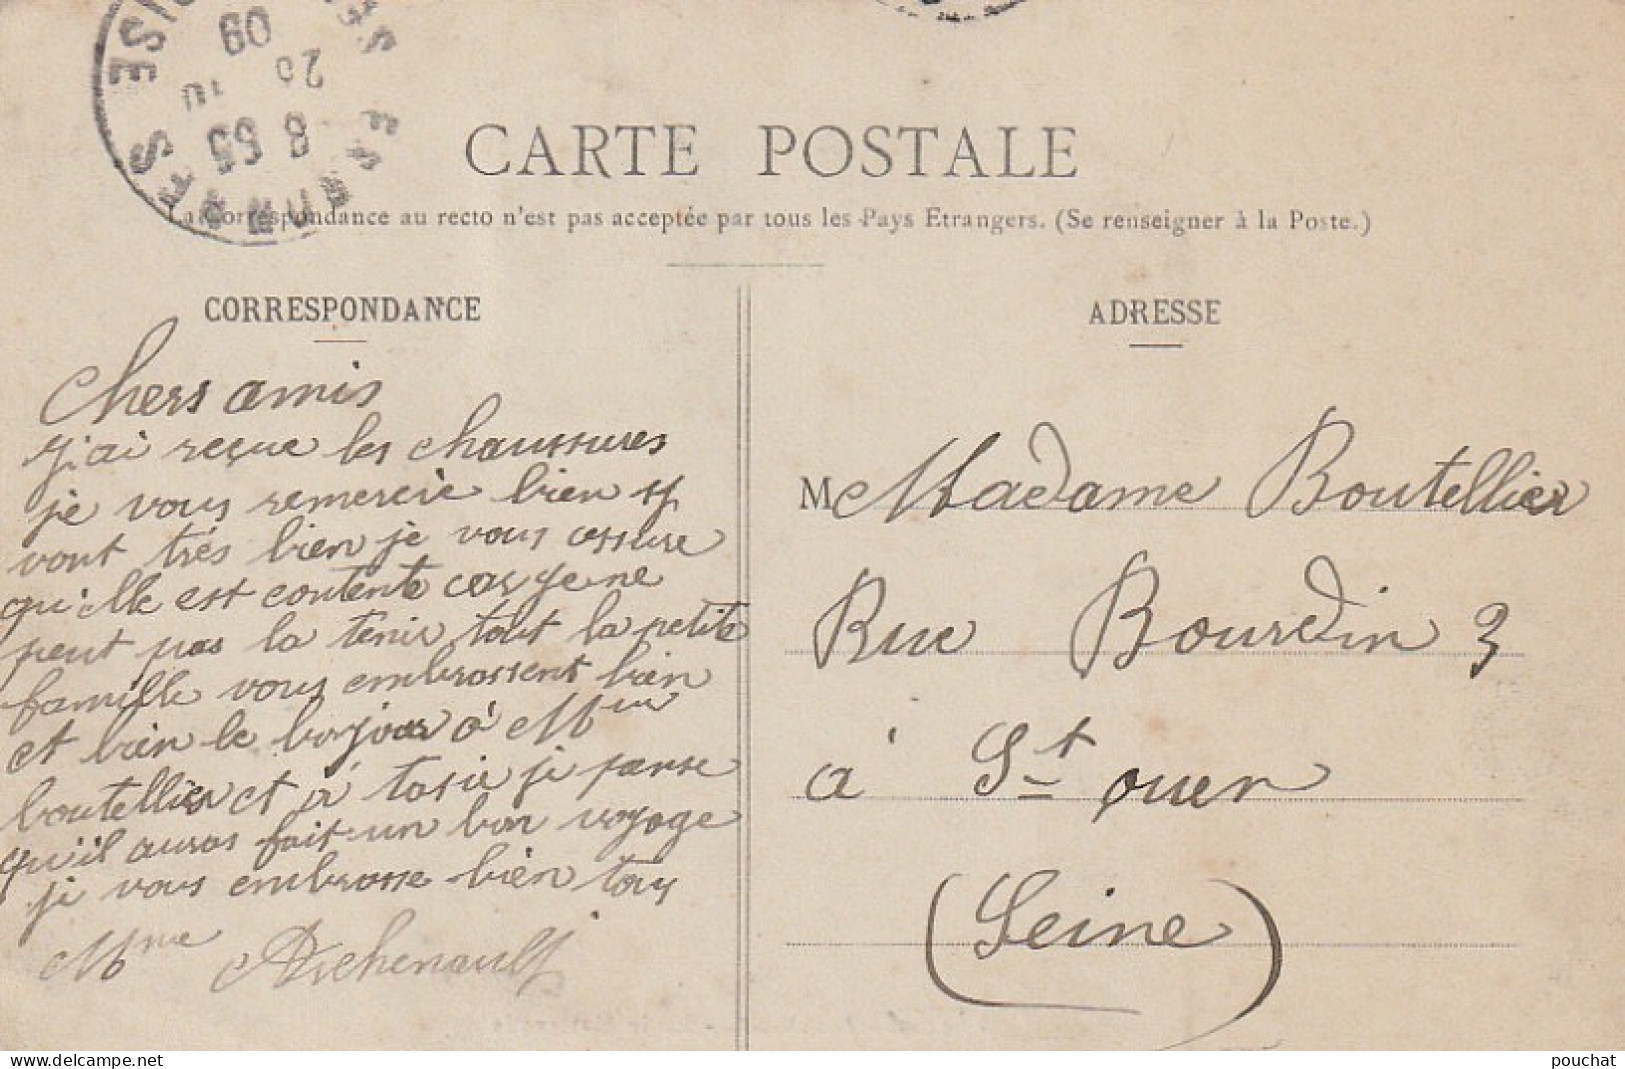 8 55
20 10
09
CARTE POSTALE
La Correspondance au recto n'est pas acceptée par tous les Pays Etrangers. (Se renseigner à la Poste.)
CORRESPONDANCE
Chers amis
j'ai reçue les chaussures
je vous remercie bien
vont très bien je vous assure
qu'elle est contente car je ne
peut pas la tenir tout la petite
famille vous embrassent bien
et bien le bonjour à Mme
boutellier et à je panse
qu'il auras fait un bon voyage
je vous embrasse bien tous
Mme Archenault
ADRESSE
M Madame Boutellier
Rue Bourdin 3
à St ouen
(Seine)
pouchat